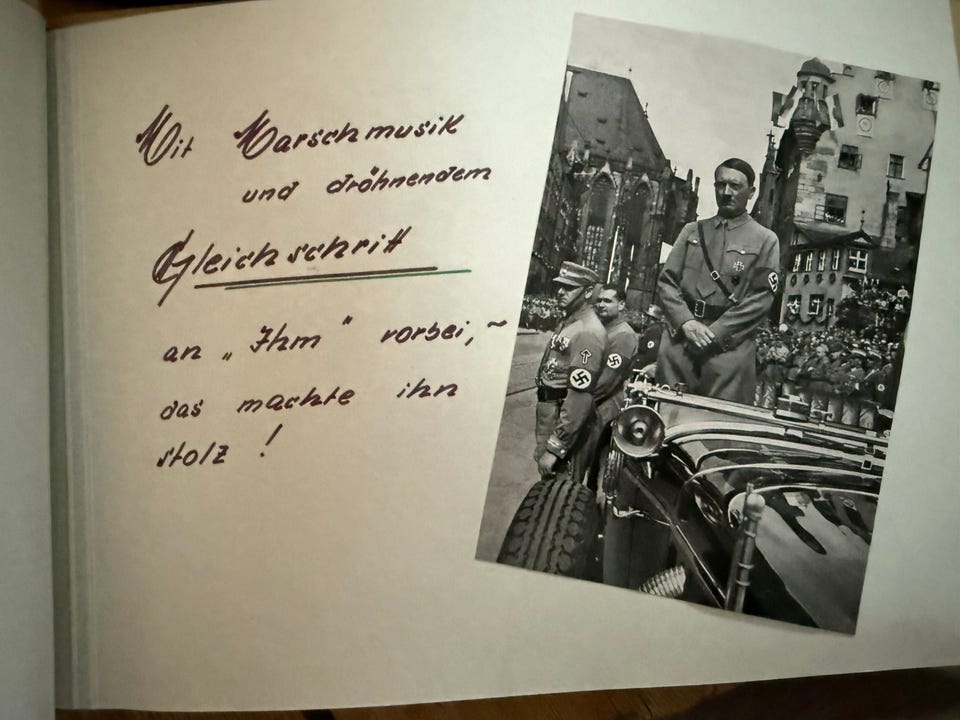 Mit Marschmusik
und dröhnendem
Gleichschritt
an „Ihm" vorbei, ~
das machte ihn
stolz !